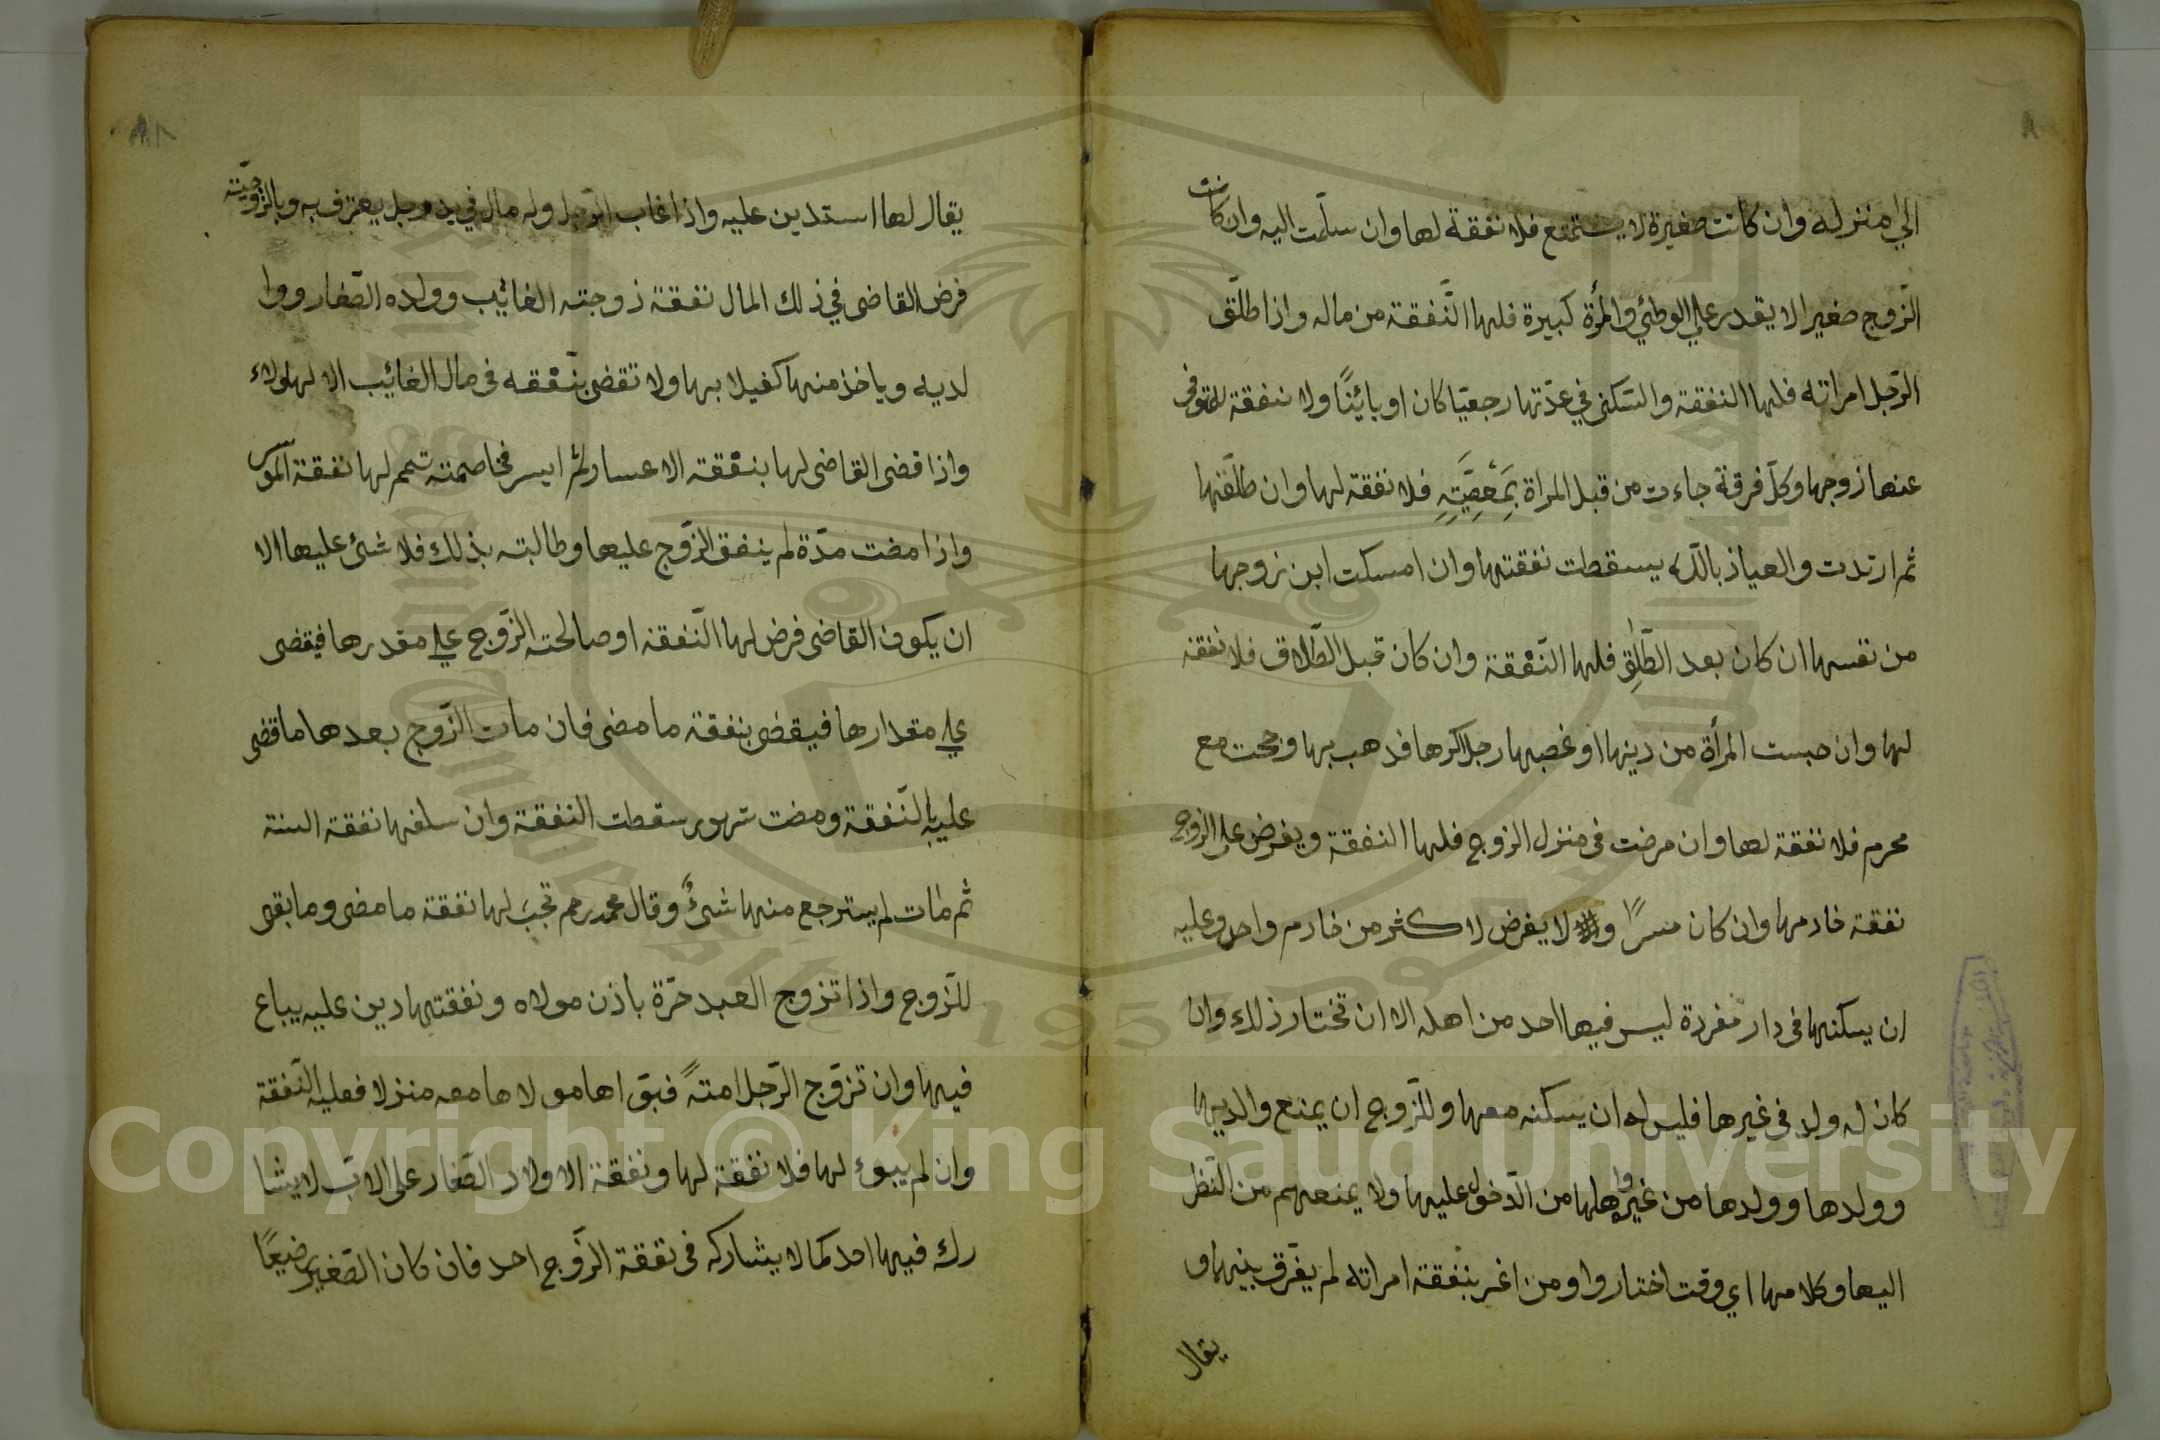 الي منزله وان كانت صغيرة لا يستمتع فلا نفقة لها وان سلّمت اليه وان كانت
الزّوج صغيرا لا يقدر علي الوطئ والمرأة كبيرة فلها النّفقة من ماله واذا طلّق
الرّجل امراته فلها النفقة والسّكنى في عدّتها رجعيّا كان او بائنًا ولا نفقة للمتوفى
عنها زوجها وكلّ فرقة جاءت من قبل المراة بمعصيته فلا نفقة لها وان طلّقها
ثم ارتدت والعياذ بالله يسقطت نفقتها وان امسكت ابن زوجها
من نفسها ان كان بعد الطّلق فلها النّفقة وان كان قبل الطّلاق فلا نفقة
لها وان حبست المرأة من دينها او غصبها رجل كرها فذهب بها او حجت مع
محرم فلا نفقة لها وان مرضت في منزل الزوج فلها النفقة ويفرض على الزوج
نفقة خادمها وان كان مسرًا و لا يفرض لاكثر من خادم واحد وعليه
ان يسكنها في دار مفردة ليس فيها احد من اهله الا ان تختار ذلك وان
كان له ولد في غيرها فليس له ان يسكنه معها وللزّوج ان يمنع والديها
وولدها وولدها من غيره واهلها من الدّخول عليها ولا يمنعهم من النّظر
اليها وكلامها اي وقت اختاروا ومن اعسر بنفقة امراته لم يفرّق بينهما و
يقال
يقال لها استدين عليه واذا غاب الرّجل وله مال في يد رجل يعترف به وبالزّوجيّة
فرض القاضى في ذلك المال نفقة زوجته الغائيب وولده الصّغار ووا
لديه وياخذ منها كفيلا بها ولا تقضى بنفقه في مال الغائيب الا لهولاء
واذا قضى القاضى لها بنفقة الاعسار ثم ايسر فخاصمته تمم لها نفقة الموسر
واذا مضت مدّة لم ينفق الزّوج عليها وطالبته بذلك فلا شئ عليها الا
ان يكون القاضى فرض لها النّفقة او صالحته الزّوج علي مقدرها فيقضى
علي مقدارها فيقضى بنفقة ما مضى فان مات الزّوج بعدها ما قضى
عليه بالنّفقة ومضت شهور سقطت النفقة وان سلفها نفقة السنة
ثم مات لم يسترجع منها شئ وقال محمد رحم تجب لها نفقة ما مضى وما بقى
للزّوج واذا تزوج العبد حرّة باذن مولاه ونفقتها دين عليه يباع
فيها وان تزوّج الرّجل امتهً فبوّاها مولاها معه منزلا فعليه النّفقة
وان لم يبوء لها فلا نفقة لها ونفقة الاولاد الصّغار على الابّ لا يشا
رك فيها احد كما لا يشاركه في نفقة الزّوج احد فان كان الصّغير رضيعًا
Copyright © King Saud University
1957